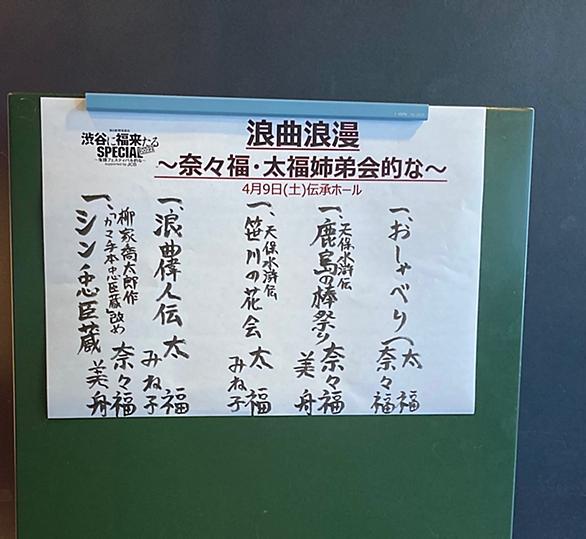 渋谷に福来たる
SPECIAL 2022
~落語フェスティバル的な~
supported by JCB
浪曲浪漫
～奈々福・太福姉弟会的な～
4月9日(土)伝承ホール
一、おしゃべり
太福
奈々福
一、天保水滸伝
鹿島の棒祭り
奈々福
美舟
一、天保水滸伝
笹川の花会
太福
みね子
一、浪曲偉人伝
太福
みね子
一、柳家喬太郎作
「カマ手本忠臣蔵」改め
シン・忠臣蔵
奈々福
美舟